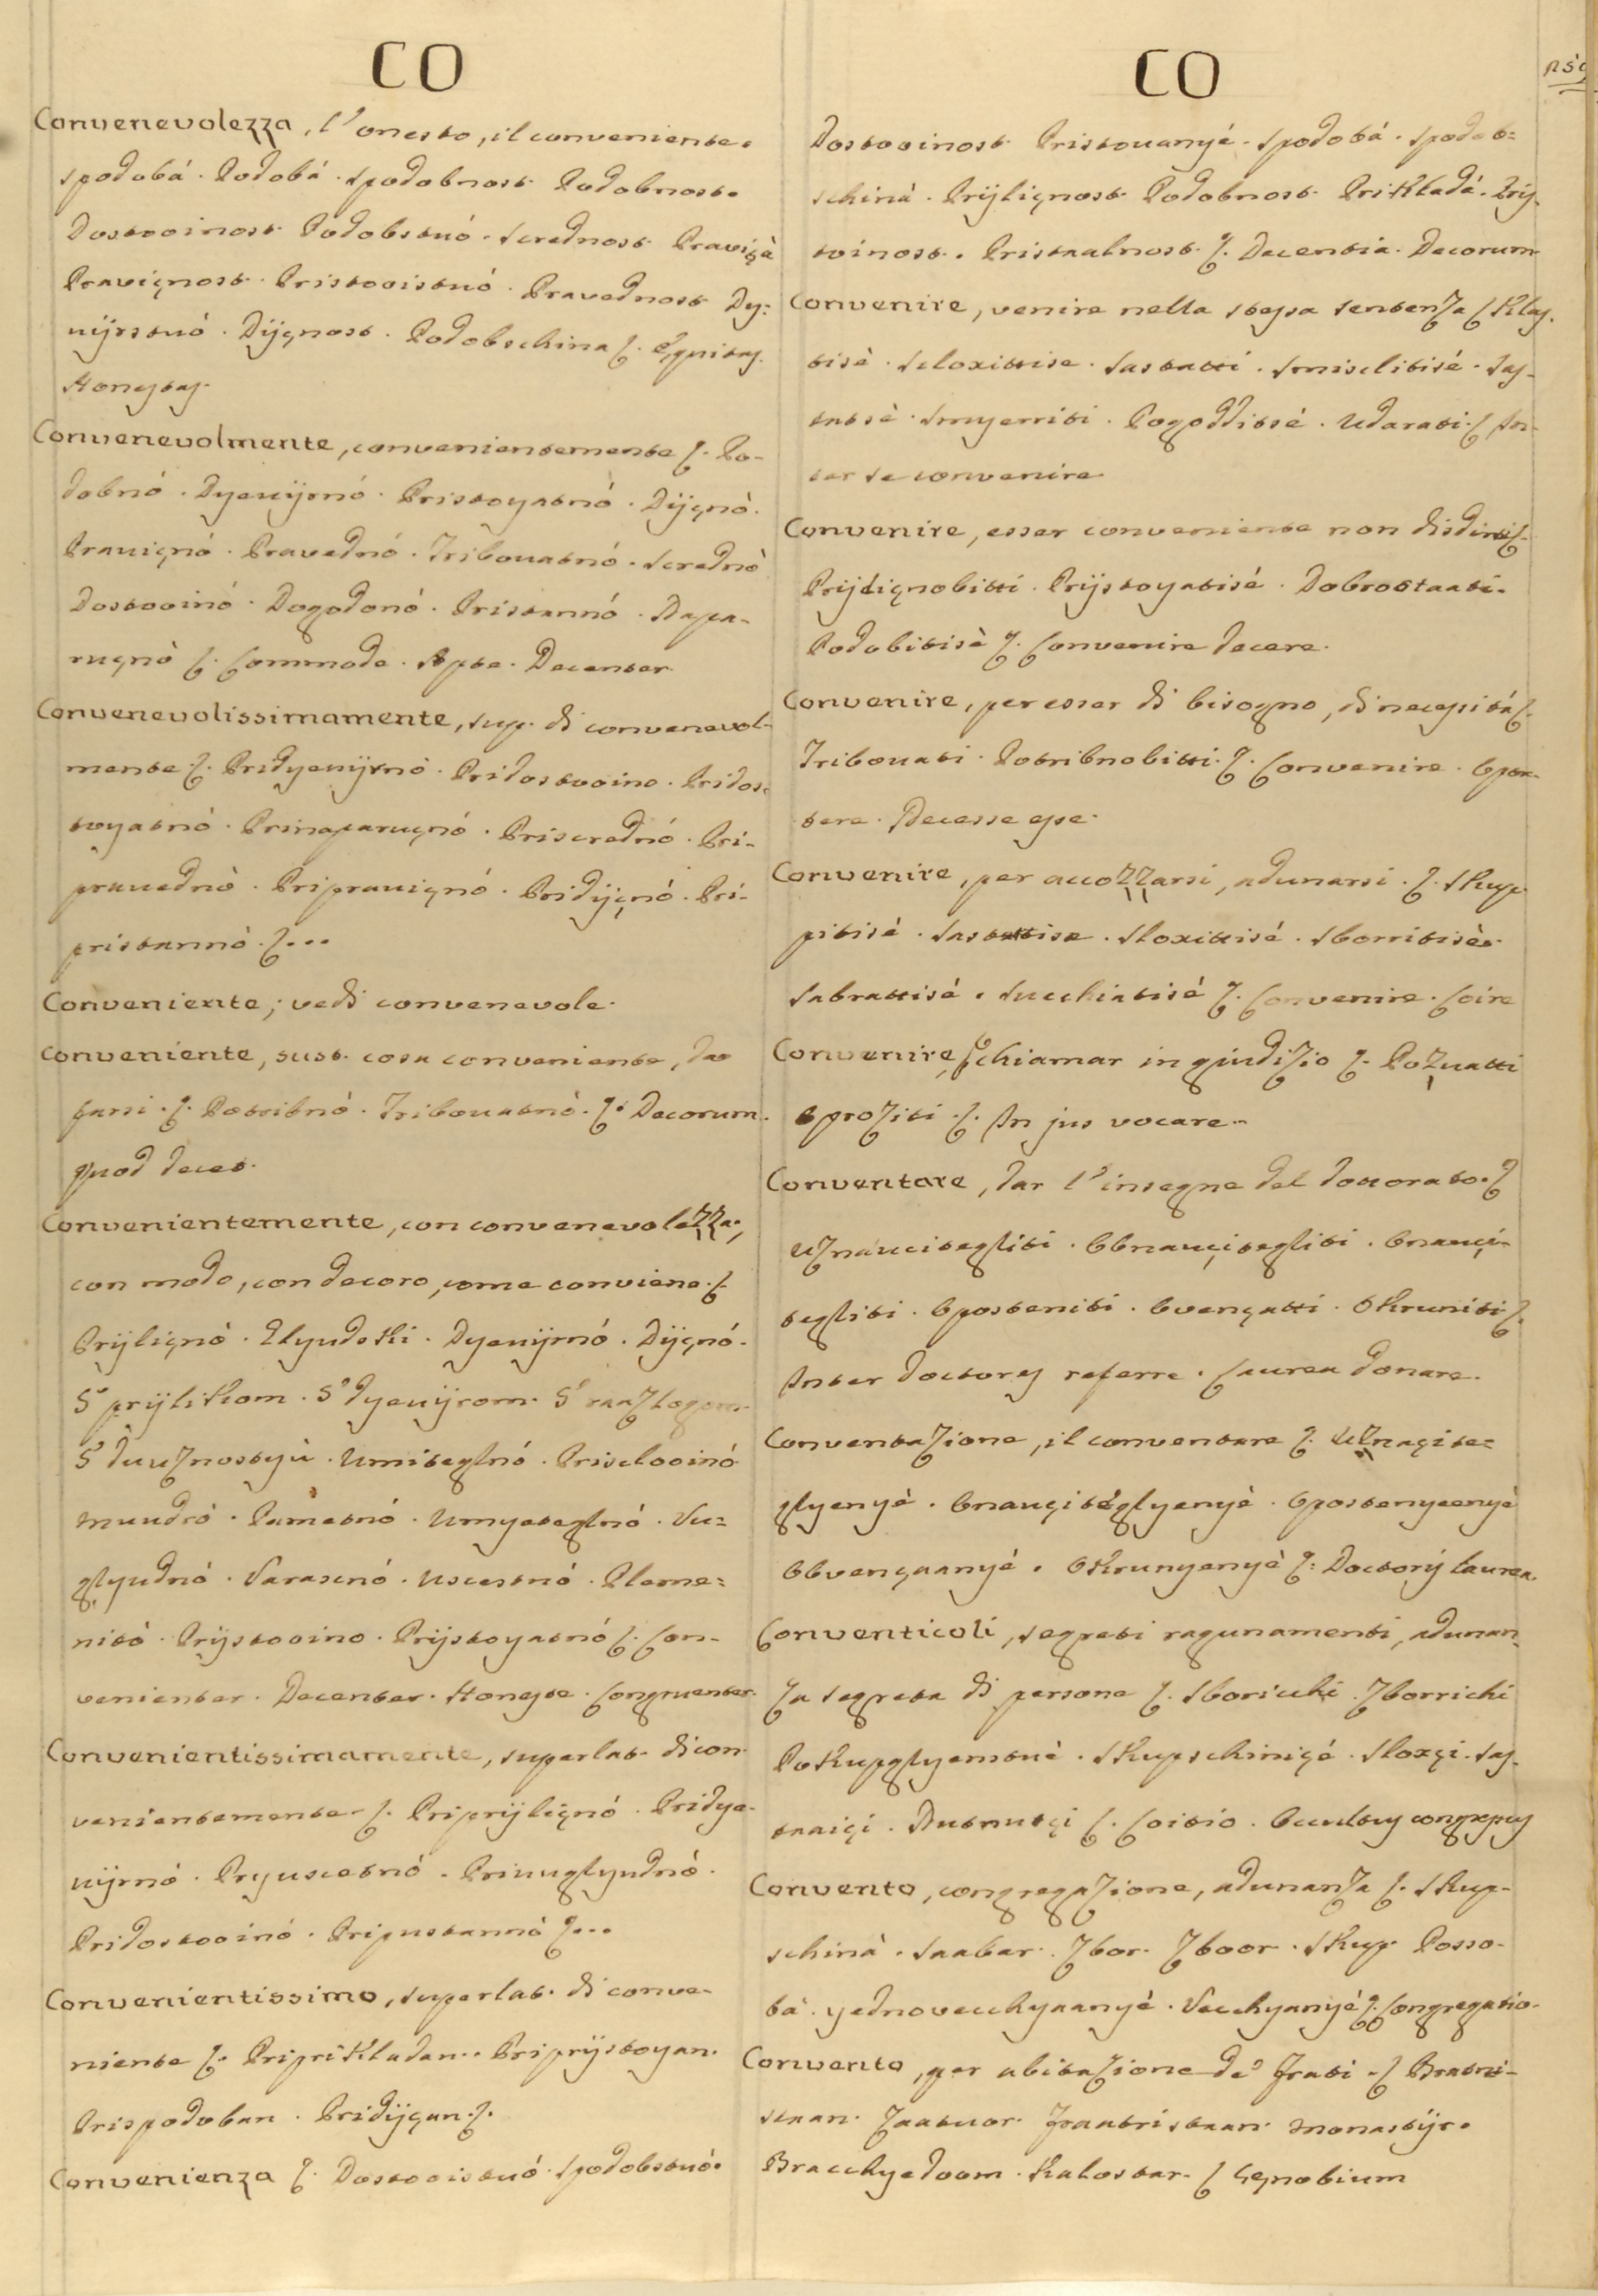 CO
Convenevolezza, l'onesto, il conveniente.
Spodobá. Podobá. Spodobnost. Podobnost.
Dostooinost. Podobstuó. Screednost. Praviçà
Praviçnost. Pristooistuó. Pravednost. Dy:
uijrstuó. Dijçnost. Podobschina ʃ. Equitas.
Honestas.
Convenevolmente, convenientemente ʃ. Po-
dobnó. Dyeuijrnó. Pristoyatnò. Dijçnò.
Prauiçnó. Pravednó. Tribouatnó. Scrednò
Dostooinó. Dogodonó. Pristannó. Napa-
ruçnò ʃ. Commode. Apte. Decenter.
Convenevolissimamente, sup. di convenevol-
mente. ʃ. Pridyeuijrnò. Pridostooino. Pridos-
toyatnò. Prinaparuçnó. Priscrednó. Pri-
prauednò. Priprauiçnó. Pridijçnó. Pri-
pristannò. ʃ...
Conveniente; vedi convenevole.
Conveniente, sust. cosa conveniente, da
farsi. ʃ. Potribnò. Tribouatnò. ʃ. Decorum.
quod decet.
Convenientemente, con convenevolezza,
con modo, con decoro, come conviene. ʃ.
Prijliçnò. Zlyudski. Dyeuijrnó. Dijçnó.
S' prijlikom. S' dyeuijrom. S' raazlogom.
S' duuznostyù. Umiteglnó. Prisclooinó
Muudrò. Pametnó. Umyeteglnó. Vu=
glyudnó. Sarascnó. Uscestnó. Pleme=
nitò. Prijstooino. Prijstoyatnó ʃ. Con-
venienter. Decenter. Honeste. Congruenter.
Convenientissimamente, superlat. di con-
venientemente. ʃ. Priprijliçnó. Pridye-
uijrnó. Pryuscetnó. Priuuglyudnò.
Pridostooinó. Pripustannò ʃ...
Convenientissimo, superlat. di conve-
niente ʃ. Priprikladan. Priprijstoyan.
Prispodoban. Pridijçan. ʃ.
Convenienza ʃ. Dostooistuó. Spodobstuó.
CO
Dostooinost. Pristouanyé. Spodobá. Spodob=
schinà. Prijliçnost. Podobnost. Prikladá. Prij-
toinost. Pristaalnost. ʃ. Decentia. Decorum
Convenire, venire nella stessa sentenza ʃ Klas-
tisè. Scloxittise. Sastatti. Smisclitisé. Sas-
tatsè. Smyerriti. Pogodditsé. Udarati. ʃ In-
ter se convenire
Convenire, esser conveniente non disdirsi ʃ.
Prijdiçnobitti. Prijstoyatisé. Dobrostaati.
Podobitisè ʃ. Convenire decere.
Convenire, per esser di bisogno, di necessità ʃ.
Tribouati. Potribnobitti. ʃ. Convenire. Opor-
tere. Necesse esse.
Convenire, per accozzarsi, adunarsi. ʃ. Skup-
pitisé. Sastattise. Sloxittisé. Sborritisè.
Sabrattisé. Succhiatisé ʃ. Convenire. Coire
Convenire, p chiamar in giudizio ʃ. Pozuatti
Oproziti. ʃ. In jus vocare.
Conventare, dar l'insegne del dottorato. ʃ
Uznáuciteglití. Obnauçitegliti. Onauçi-
tegliti. Oposteniti. Ovençatti. Okruniti ʃ.
Inter doctores referre. Laurea donare.
Conventazione, il conventare ʃ. Uznaçite=
glyenyè. Onauçitéglyenyè. Opostenyeenyè
Obvençaanyé. Okrunyenyè ʃ: Doctoris laurea.
Conventicoli, segreti ragunamenti, adunan-
za segreta di persone ʃ. Sboricchi. Zborrichi
Pokupglyenstuè. Skupschiniçé. Sloxçi. Sas-
taiçi. Nutnutçi ʃ. Coitio. Occultus congressus
Convento, congregazione, adunanza ʃ. Skup-
schinà. Saabar. Zbor. Zboor. Skup. Posso-
bà. Yednovecchyaanyè. Vecchyanyé ʃ. Congregatio.
Convento, per abitazione de' frati. ʃ Bratri-
staan. Zaatuor. Fraatristaan. Monastijr.
Bracchyedoom. Kalostar. ʃ Cęnobium